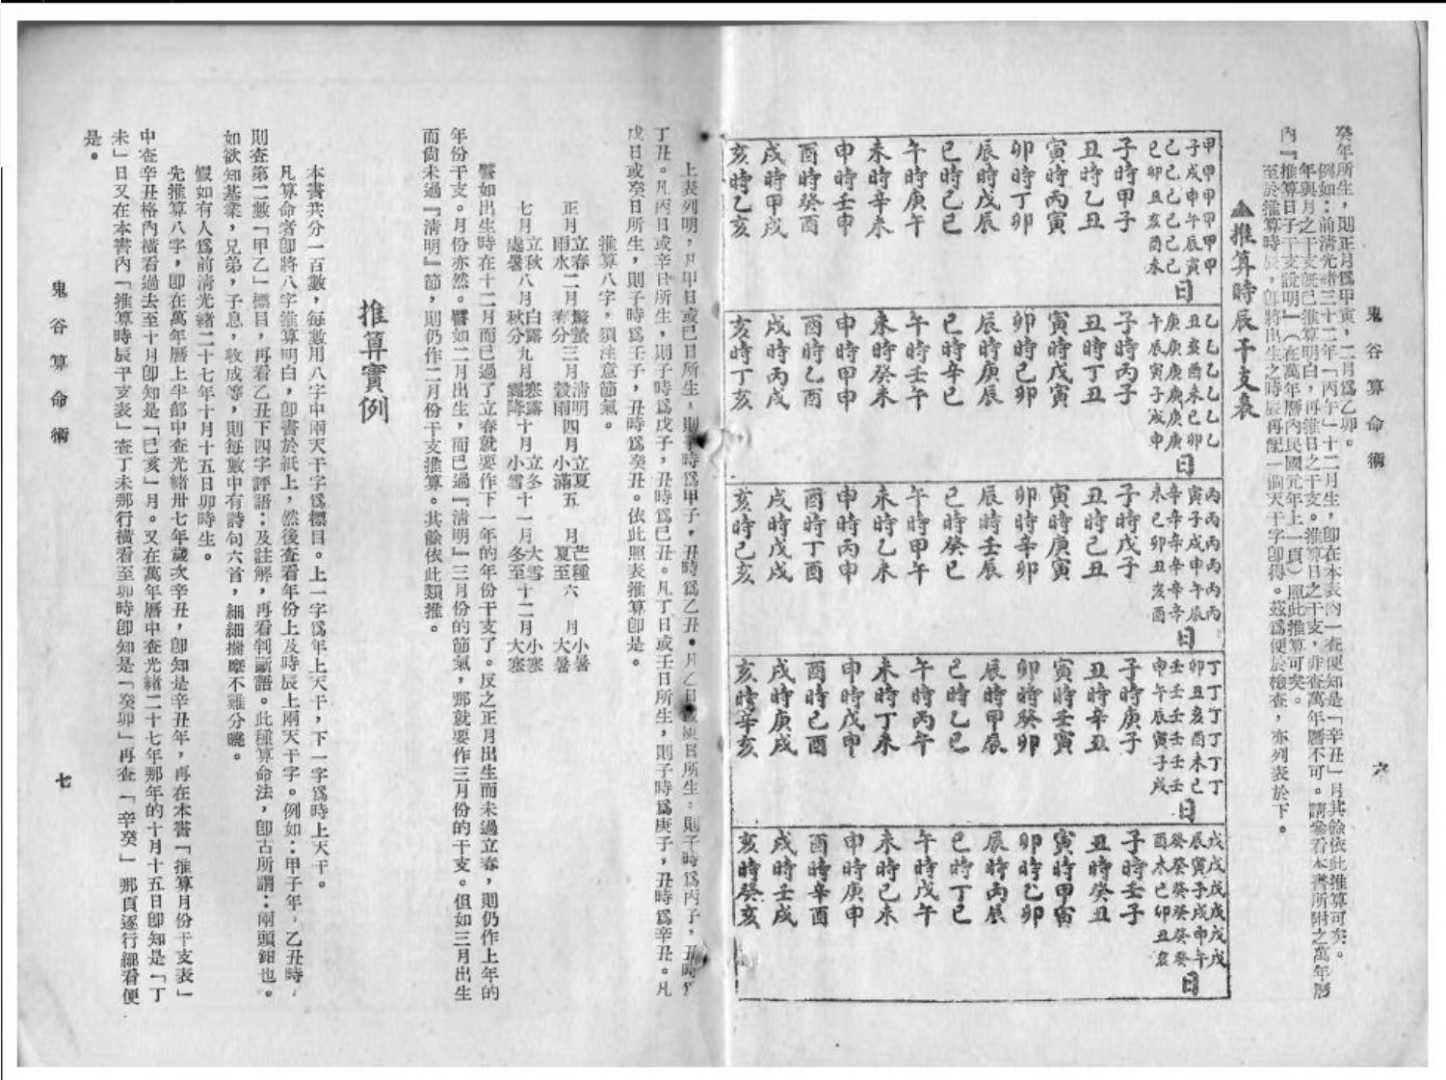 鬼谷算命術
六
癸年所生，則正月爲甲寅，二月爲乙卯。
例如：前清光緒三十二年「丙午」十二月生，卽在本表內一查便知是「辛丑」月其餘依此推算可矣。
年與月之干支既已推算明白，再推日之干支。推算日之干支，非查萬年曆不可。請參看本書所附之萬年曆
內『推算日子干支說明』（在萬年曆內民國元年上一頁）照此推算可矣。
至於推算時辰，卽將出生之時辰再配一個天干字卽得。茲爲便於檢查，亦列表於下。
▲推算時辰干支表
甲甲甲甲甲甲
子戌申午辰寅
己己己己己己
巳卯丑亥酉未
日
子時甲子
丑時乙丑
寅時丙寅
卯時丁卯
辰時戊辰
巳時己巳
午時庚午
未時辛未
申時壬申
酉時癸酉
戌時甲戌
亥時乙亥
乙乙乙乙乙乙
丑亥酉未巳卯
庚庚庚庚庚庚
午辰寅子戌申
日
子時丙子
丑時丁丑
寅時戊寅
卯時己卯
辰時庚辰
巳時辛巳
午時壬午
未時癸未
申時甲申
酉時乙酉
戌時丙戌
亥時丁亥
丙丙丙丙丙丙
寅子戌申午辰
辛辛辛辛辛辛
未巳卯丑亥酉
日
子時戊子
丑時己丑
寅時庚寅
卯時辛卯
辰時壬辰
巳時癸巳
午時甲午
未時乙未
申時丙申
酉時丁酉
戌時戊戌
亥時己亥
丁丁丁丁丁丁
卯丑亥酉未巳
壬壬壬壬壬壬
申午辰寅子戌
日
子時庚子
丑時辛丑
寅時壬寅
卯時癸卯
辰時甲辰
巳時乙巳
午時丙午
未時丁未
申時戊申
酉時己酉
戌時庚戌
亥時辛亥
戊戊戊戊戊戊
辰寅子戌申午
癸癸癸癸癸癸
酉未巳卯丑亥
日
子時壬子
丑時癸丑
寅時甲寅
卯時乙卯
辰時丙辰
巳時丁巳
午時戊午
未時己未
申時庚申
酉時辛酉
戌時壬戌
亥時癸亥
上表列明，凡甲日或己日所生，則子時爲甲子，丑時爲乙丑。凡乙日或庚日所生：則子時爲丙子，丑時爲
丁丑。凡丙日或辛日所生，則子時爲戊子，丑時爲己丑。凡丁日或壬日所生，則子時爲庚子，丑時爲辛丑。凡
戊日或癸日所生，則子時爲壬子，丑時爲癸丑。依此照表推算卽是。
推算八字，須注意節氣。
正月立春雨水二月驚蟄春分三月清明穀雨四月立夏小滿五月芒種夏至六月小暑大暑
七月立秋處暑八月白露秋分九月寒露霜降十月立冬小雪十一月大雪冬至十二月小寒大寒
譬如出生時在十二月而已過了立春就要作下一年的年份干支了。反之正月出生而未過立春，則仍作上年的
年份干支。月份亦然。譬如二月出生，而已過『清明』三月份的節氣，那就要作三月份的干支。但如三月出生
而尙未過『清明』節，則仍作二月份干支推算。其餘依此類推。
推算實例
本書共分一百數，每數用八字中兩天干字爲標目。上一字爲年上天干，下一字爲時上天干。
凡算命者卽將八字推算明白，卽書於紙上，然後查看年份上及時辰上兩天干字。例如：甲子年，乙丑時，
則查第二數「甲乙」標目，再看乙丑下四字評語：及註解，再看判斷語。此種算命法，卽古所謂：兩頭鉗也。
如欲知基業，兄弟，子息，收成等，則每數中有詩句六首，細細揣摩不難分曉。
假如有人爲前清光緒二十七年十月十五日卯時生。
先推算八字，卽在萬年曆上半部中查光緒卅七年歲次辛丑，卽知是辛丑年，再在本書「推算月份干支表」
中查辛丑格內橫看過去至十月卽知是「己亥」月。又在萬年曆中查光緒二十七年那年的十月十五日卽知是「丁
未」日又在本書內「推算時辰干支表」查丁未那行橫看至卯時卽知是「癸卯」再查「辛癸」那頁逐行細看便
是。
鬼谷算命術
七